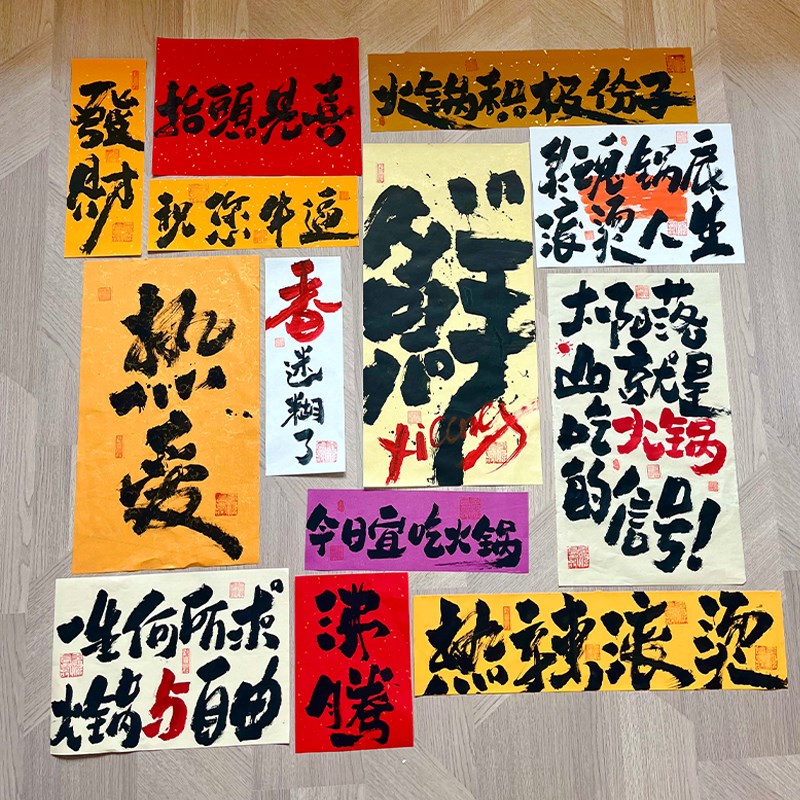 發財
抬頭見喜
火锅积极份子
祝您牛逼
灵魂锅底
滚烫人生
热爱
香迷糊了
鮮
太阳落
山就是
吃火锅
的信号!
今日宜吃火锅
一生何所求
火锅与自由
沸腾
热辣滚烫